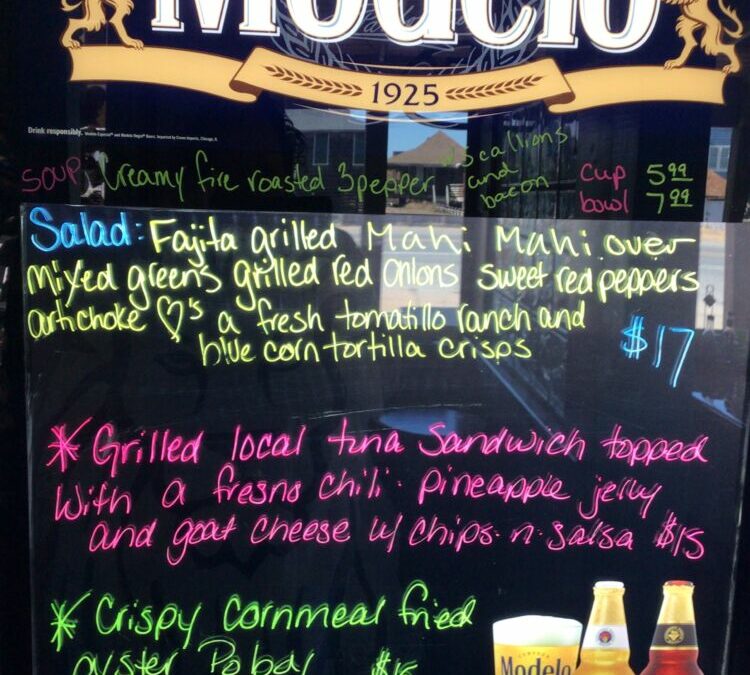 Modelo
1925
Drink responsibly.
Soup: Creamy fire roasted 3 pepper w/ scallions and bacon cup 5.99
bowl 7.99
Salad: Fajita grilled Mahi Mahi over
mixed greens grilled red onions sweet red peppers
artichoke ♡'s a fresh tomatillo ranch and
blue corn tortilla crisps $17
* Grilled local tuna sandwich topped
with a fresno chili · pineapple jelly
and goat cheese w/ chips · n · salsa $15
* Crispy cornmeal fried
oyster Po boy
Modelo